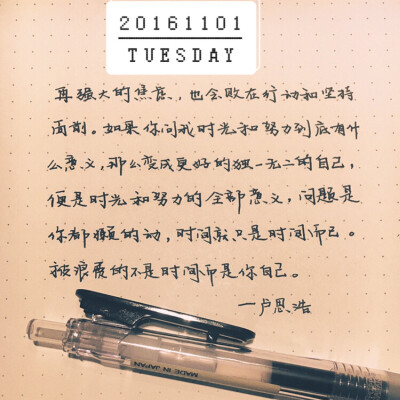 20161101
TUESDAY
再强大的焦虑，也会败在行动和坚持
面前。如果你问我时光和努力到底有什
么意义，那么变成更好的独一无二的自己，
便是时光和努力的全部意义，问题是
你都懒的动，时间就只是时间而已。
被浪费的不是时间而是你自己。
—卢思浩
MADE IN JAPAN